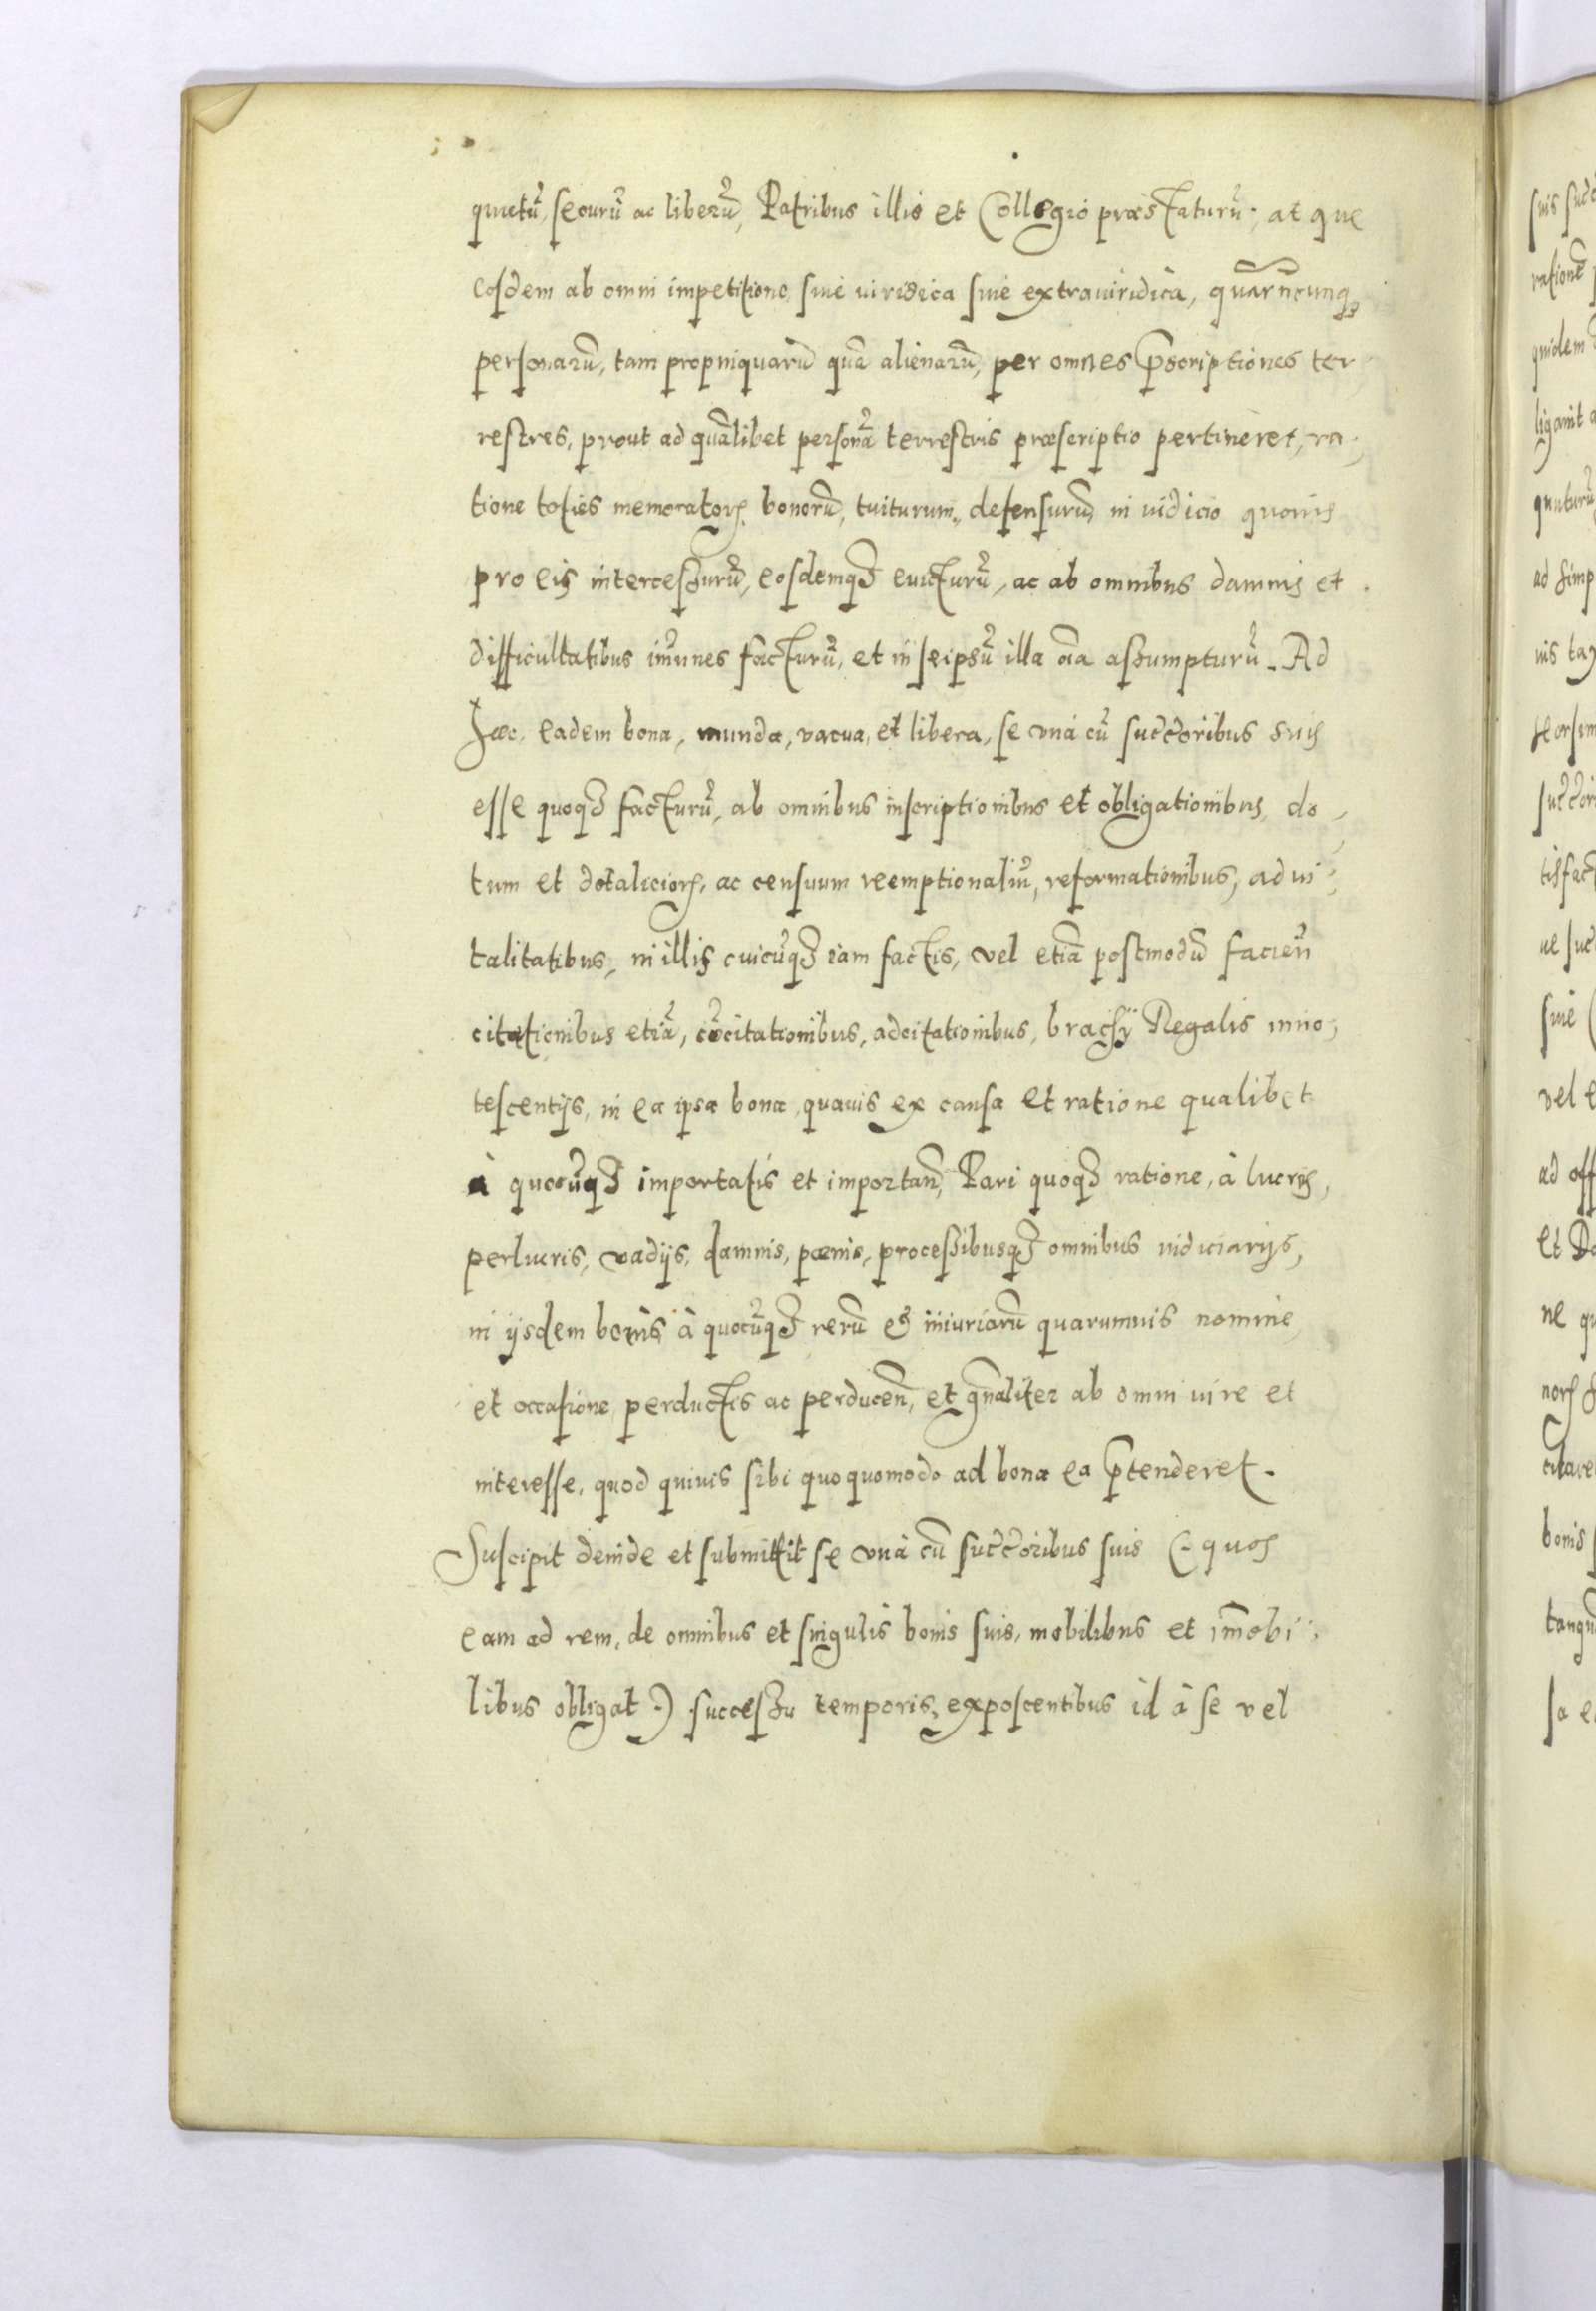 quietū, securū ac liberū, Patribus illis et Collegio præstaturū; atque
eosdem ab omni impetitione siue iuridica siue extraiuridica, quarūcunqꝫ
personarū, tam propinquarū quā alienarū, per omnes p̄scriptiones ter
restres, prout ad quālibet personā terrestris præscriptio pertineret, ra-
tione toties memoratorꝝ bonorū, tuiturum, defensurū, in iudicio quouis
pro eis intercessurū, eosdemqꝫ euicturū, ac ab omnibus damnis et
difficultatibus im̄unes facturū, et in seipsū illa oīa assumpturū. Ad
Hæc, eadem bona, munda, vacua, et libera, se vnà cū succ̄oribus suis
esse quoqꝫ facturū, ab omnibus inscriptionibus et obligationibus, do-
tum et dotaliciorꝝ, ac censuum reemptionaliū, reformationibus, aduí-
talitatibus, in illis cuicūqꝫ iam factis, vel etiā postmodū facien̄
citationibus etiā, cōcitationibus, adcitationibus, brachij Regalis inno-
tescentijs, in ea ipsa bona, quauis ex causa et ratione qualibet
à quocūqꝫ importatis et importan̄, Pari quoqꝫ ratione, à lucris,
perlucris, vadijs, damnis, pœnis, processibusqꝫ omnibus iudiciarijs,
in ijsdem bonis à quocūqꝫ rerū & iniuriarū quarumuis nomine
et occasione perductis ac perducen̄, et gn̄aliter ab omni iure et
interesse, quod quiuis sibi quoquomodo ad bona ea p̄tenderet.
Suscipit deinde et submittit se vnà cū succ̄oribus suis (: quos
eam ad rem, de omnibus et singulis bonis suis, mobilibus et im̄obi-
libus obligat :) successu temporis, exposcentibus id à se vel